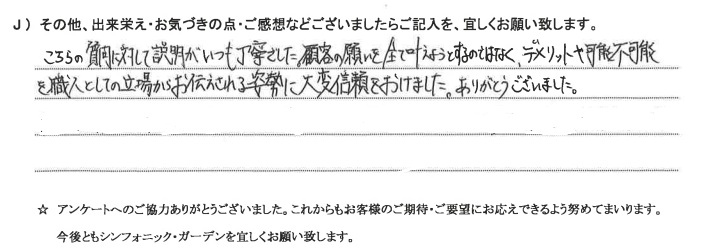 J）その他、出来栄え・お気づきの点・ご感想などございましたらご記入を、宜しくお願い致します。
こちらの質問に対して説明がいつも丁寧でした。顧客の願いを全て叶えようとするのではなく、デメリットや可能不可能
を職人としての立場からお伝えされる姿勢に大変信頼をおけました。ありがとうございました。
☆ アンケートへのご協力ありがとうございました。これからもお客様のご期待・ご要望にお応えできるよう努めてまいります。
今後ともシンフォニック・ガーデンを宜しくお願い致します。